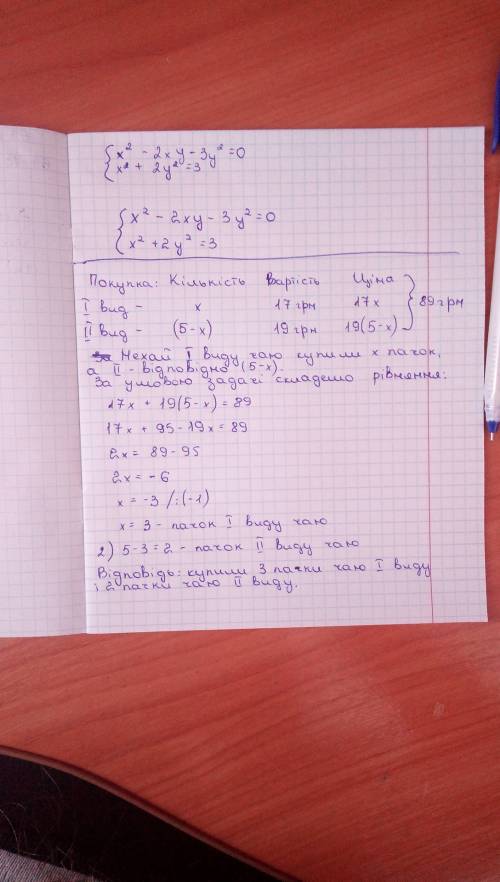 {x² - 2xy - 3y² = 0
x² + 2y² = 3
{x² - 2xy - 3y² = 0
x² + 2y² = 3
Покупка: Кількість Вартість Ціна
I вид - x 17 грн 17x } 89 грн
II вид - (5-x) 19 грн 19(5-x)
За Нехай I виду чаю купили x пачок,
а II - відповідно (5-x).
За умовою задачі складемо рівняння:
17x + 19(5-x) = 89
17x + 95 - 19x = 89
2x = 89 - 95
2x = -6
x = -3 /:(-1)
x = 3 - пачок I виду чаю
2) 5-3=2 - пачок II виду чаю
Відповідь: купили 3 пачки чаю I виду
і 2 пачки чаю II виду.